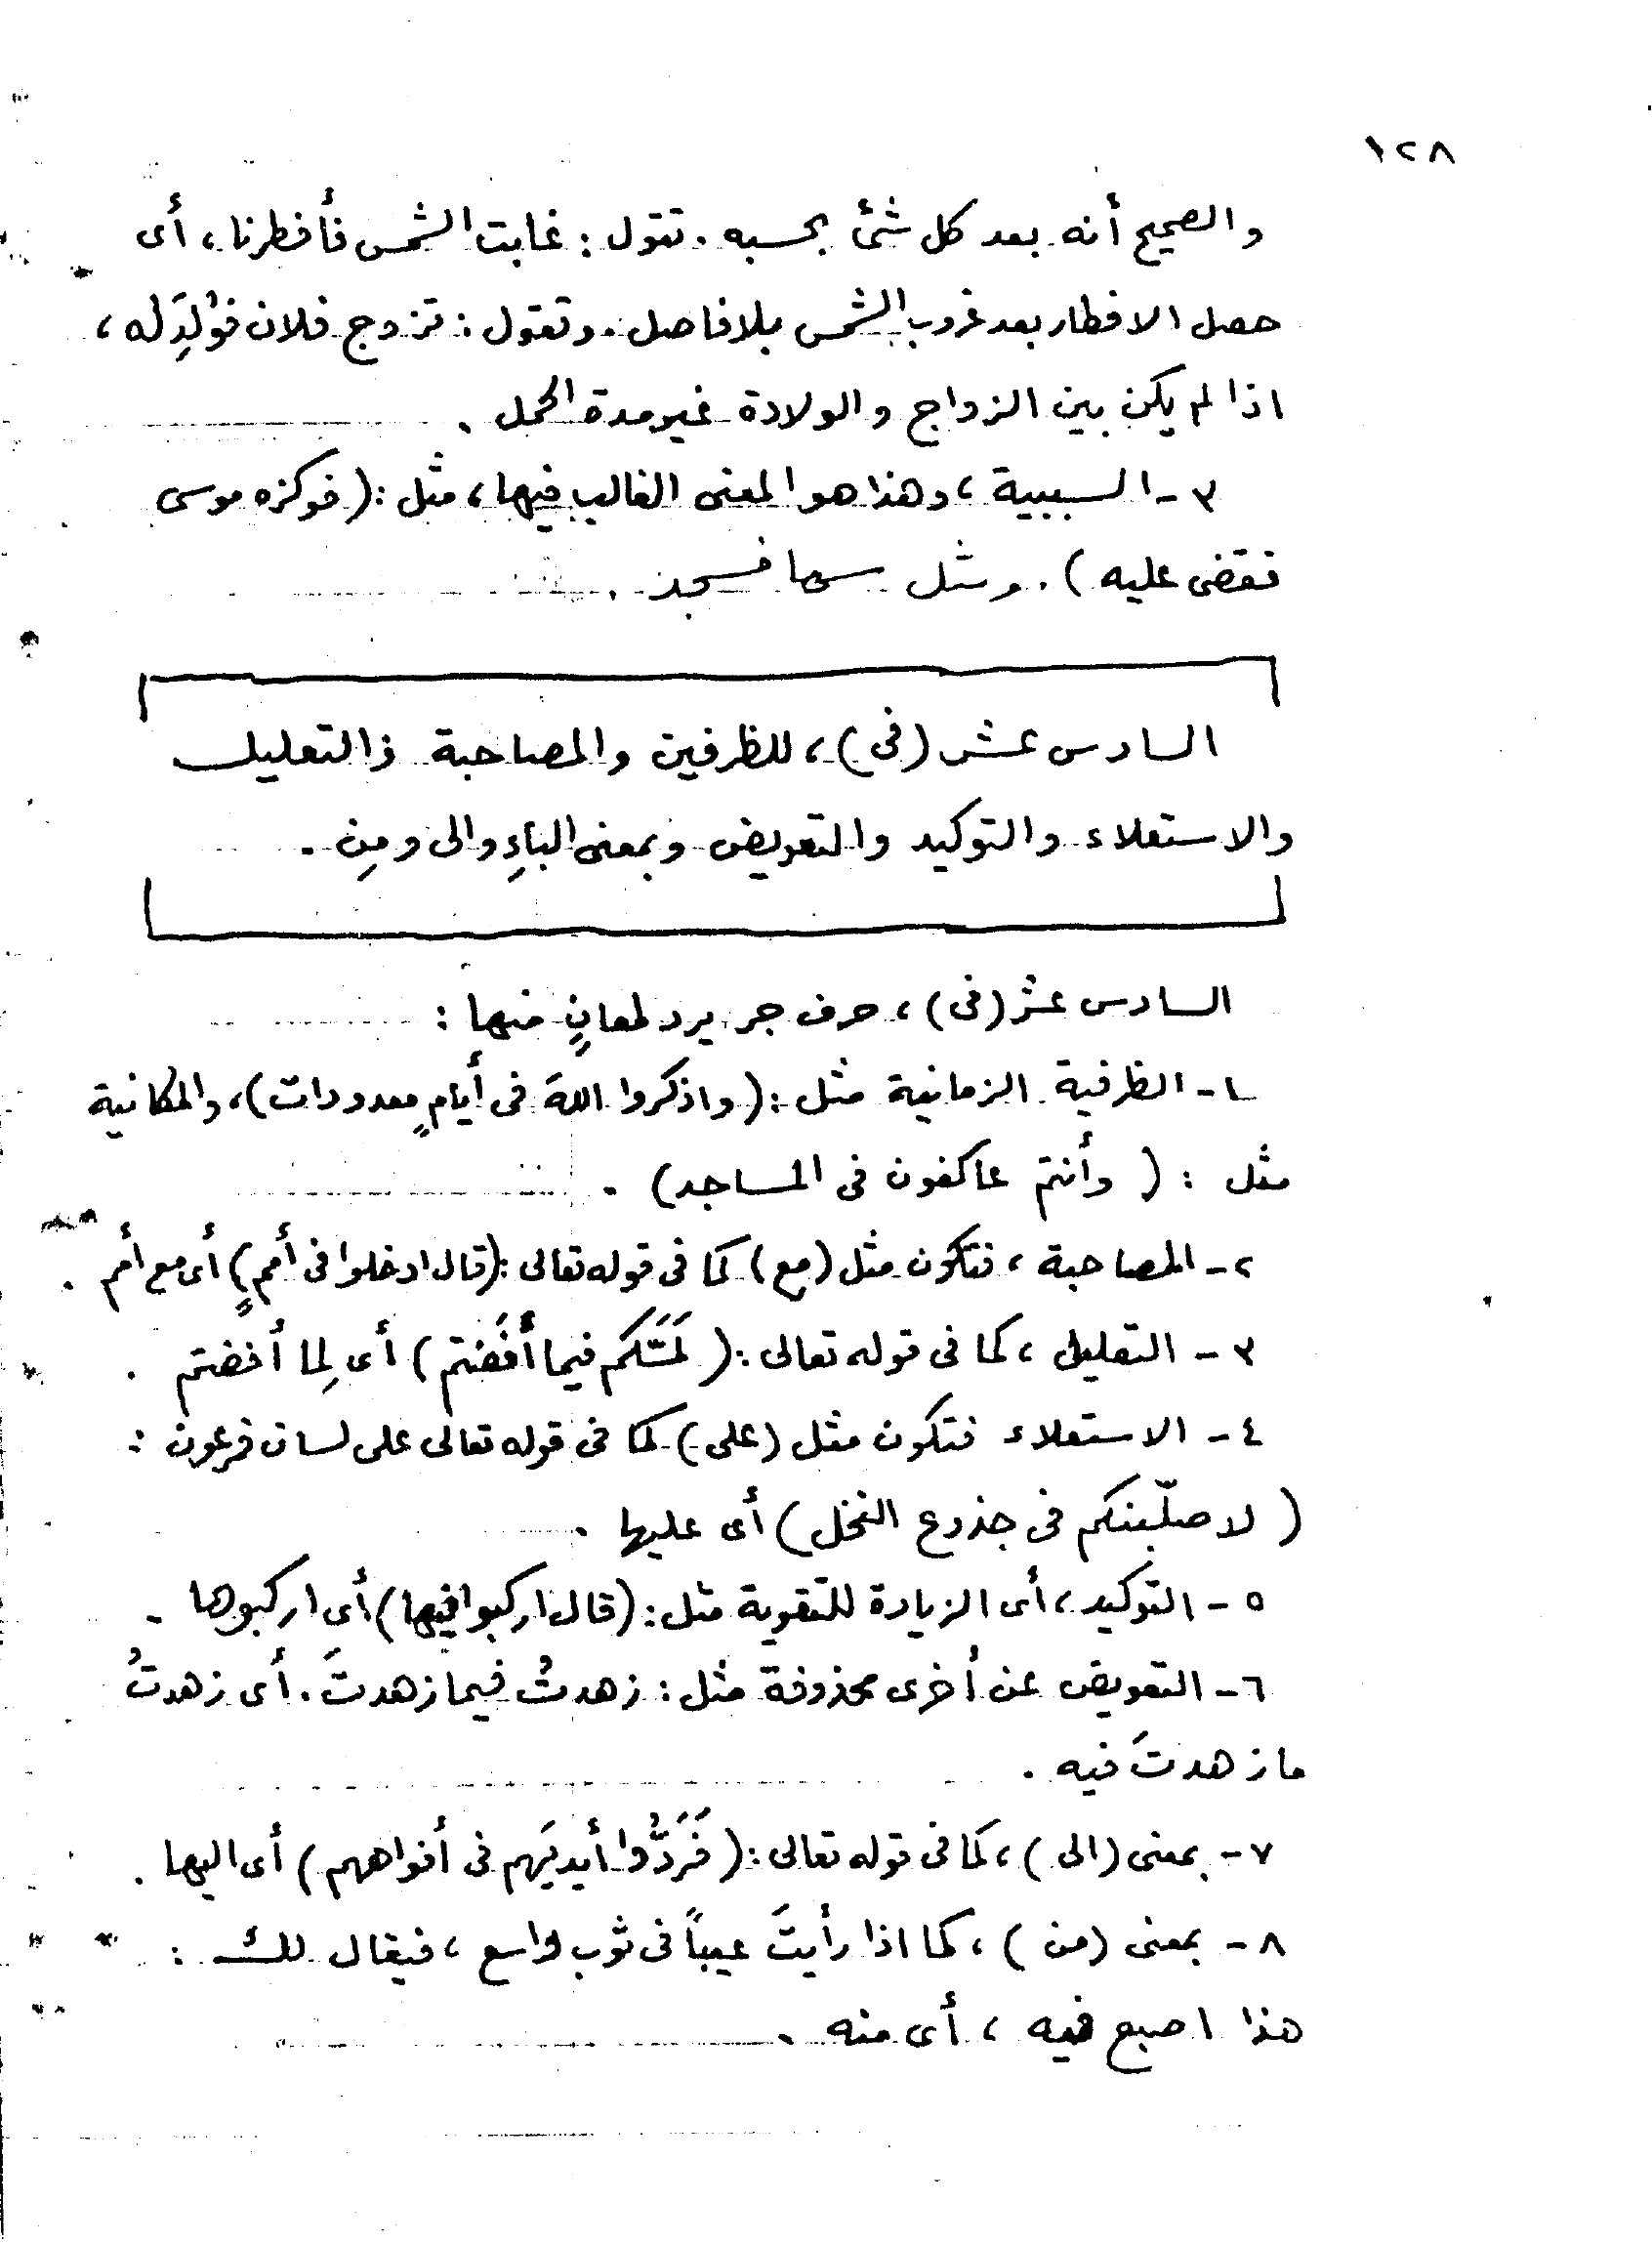 ١٢٨
والصحيح أنه بعد كل شئ بحسبه . تقول : غابت الشمس فأفطرنا ، أى
حصل الافطار بعد غروب الشمس بلا فاصل . وتقول : تزوج فلان فوُلِدَ له ،
اذا لم يكن بين الزواج والولادة غير مدة الحمل .
٣ - السببية ، وهذا هو المعنى الغالب فيها ، مثل : ( فوكزه موسى
فقضى عليه ) . ومثل سها فسجد .
السادس عشر ( فى ) ، للظرفين والمصاحبة والتعليل
والاستعلاء والتوكيد والتعويض وبمعنى الباءِ والى ومِن .
السادس عشر ( فى ) ، حرف جر يرد لمعانٍ منها :
١ - الظرفية الزمانية مثل : ( واذكروا اللهَ فى أيامٍ معدودات ) ، والمكانية
مثل : ( وأنتم عاكفون فى المساجد ) .
٢ - المصاحبة ، فتكون مثل ( مع ) كما فى قوله تعالى : ( قال ادخلوا فى أممٍ ) أى مع أمم .
٣ - التعليل ، كما فى قوله تعالى : ( لَمَسَّكم فيما أفَضتم ) أى لِما أفضتم .
٤ - الاستعلاء فتكون مثل ( على ) كما فى قوله تعالى على لسان فرعون :
( لاصلّبنكم فى جذوع النخل ) أى عليها .
٥ - التوكيد ، أى الزيادة للتقوية مثل : ( قال اركبوا فيها ) أى اركبوها .
٦ - التعويض عن أخرى محذوفة مثل : زهدتُ فيما زهدتَ . أى زهدتُ
ما زهدتَ فيه .
٧ - بمعنى ( الى ) ، كما فى قوله تعالى : ( فَرَدُّوا أيديَهم فى أفواههم ) أى اليها .
٨ - بمعنى ( من ) ، كما اذا رأيتَ عيباً فى ثوب واسع ، فيقال لك :
هذا اصبع فيه ، أى منه .